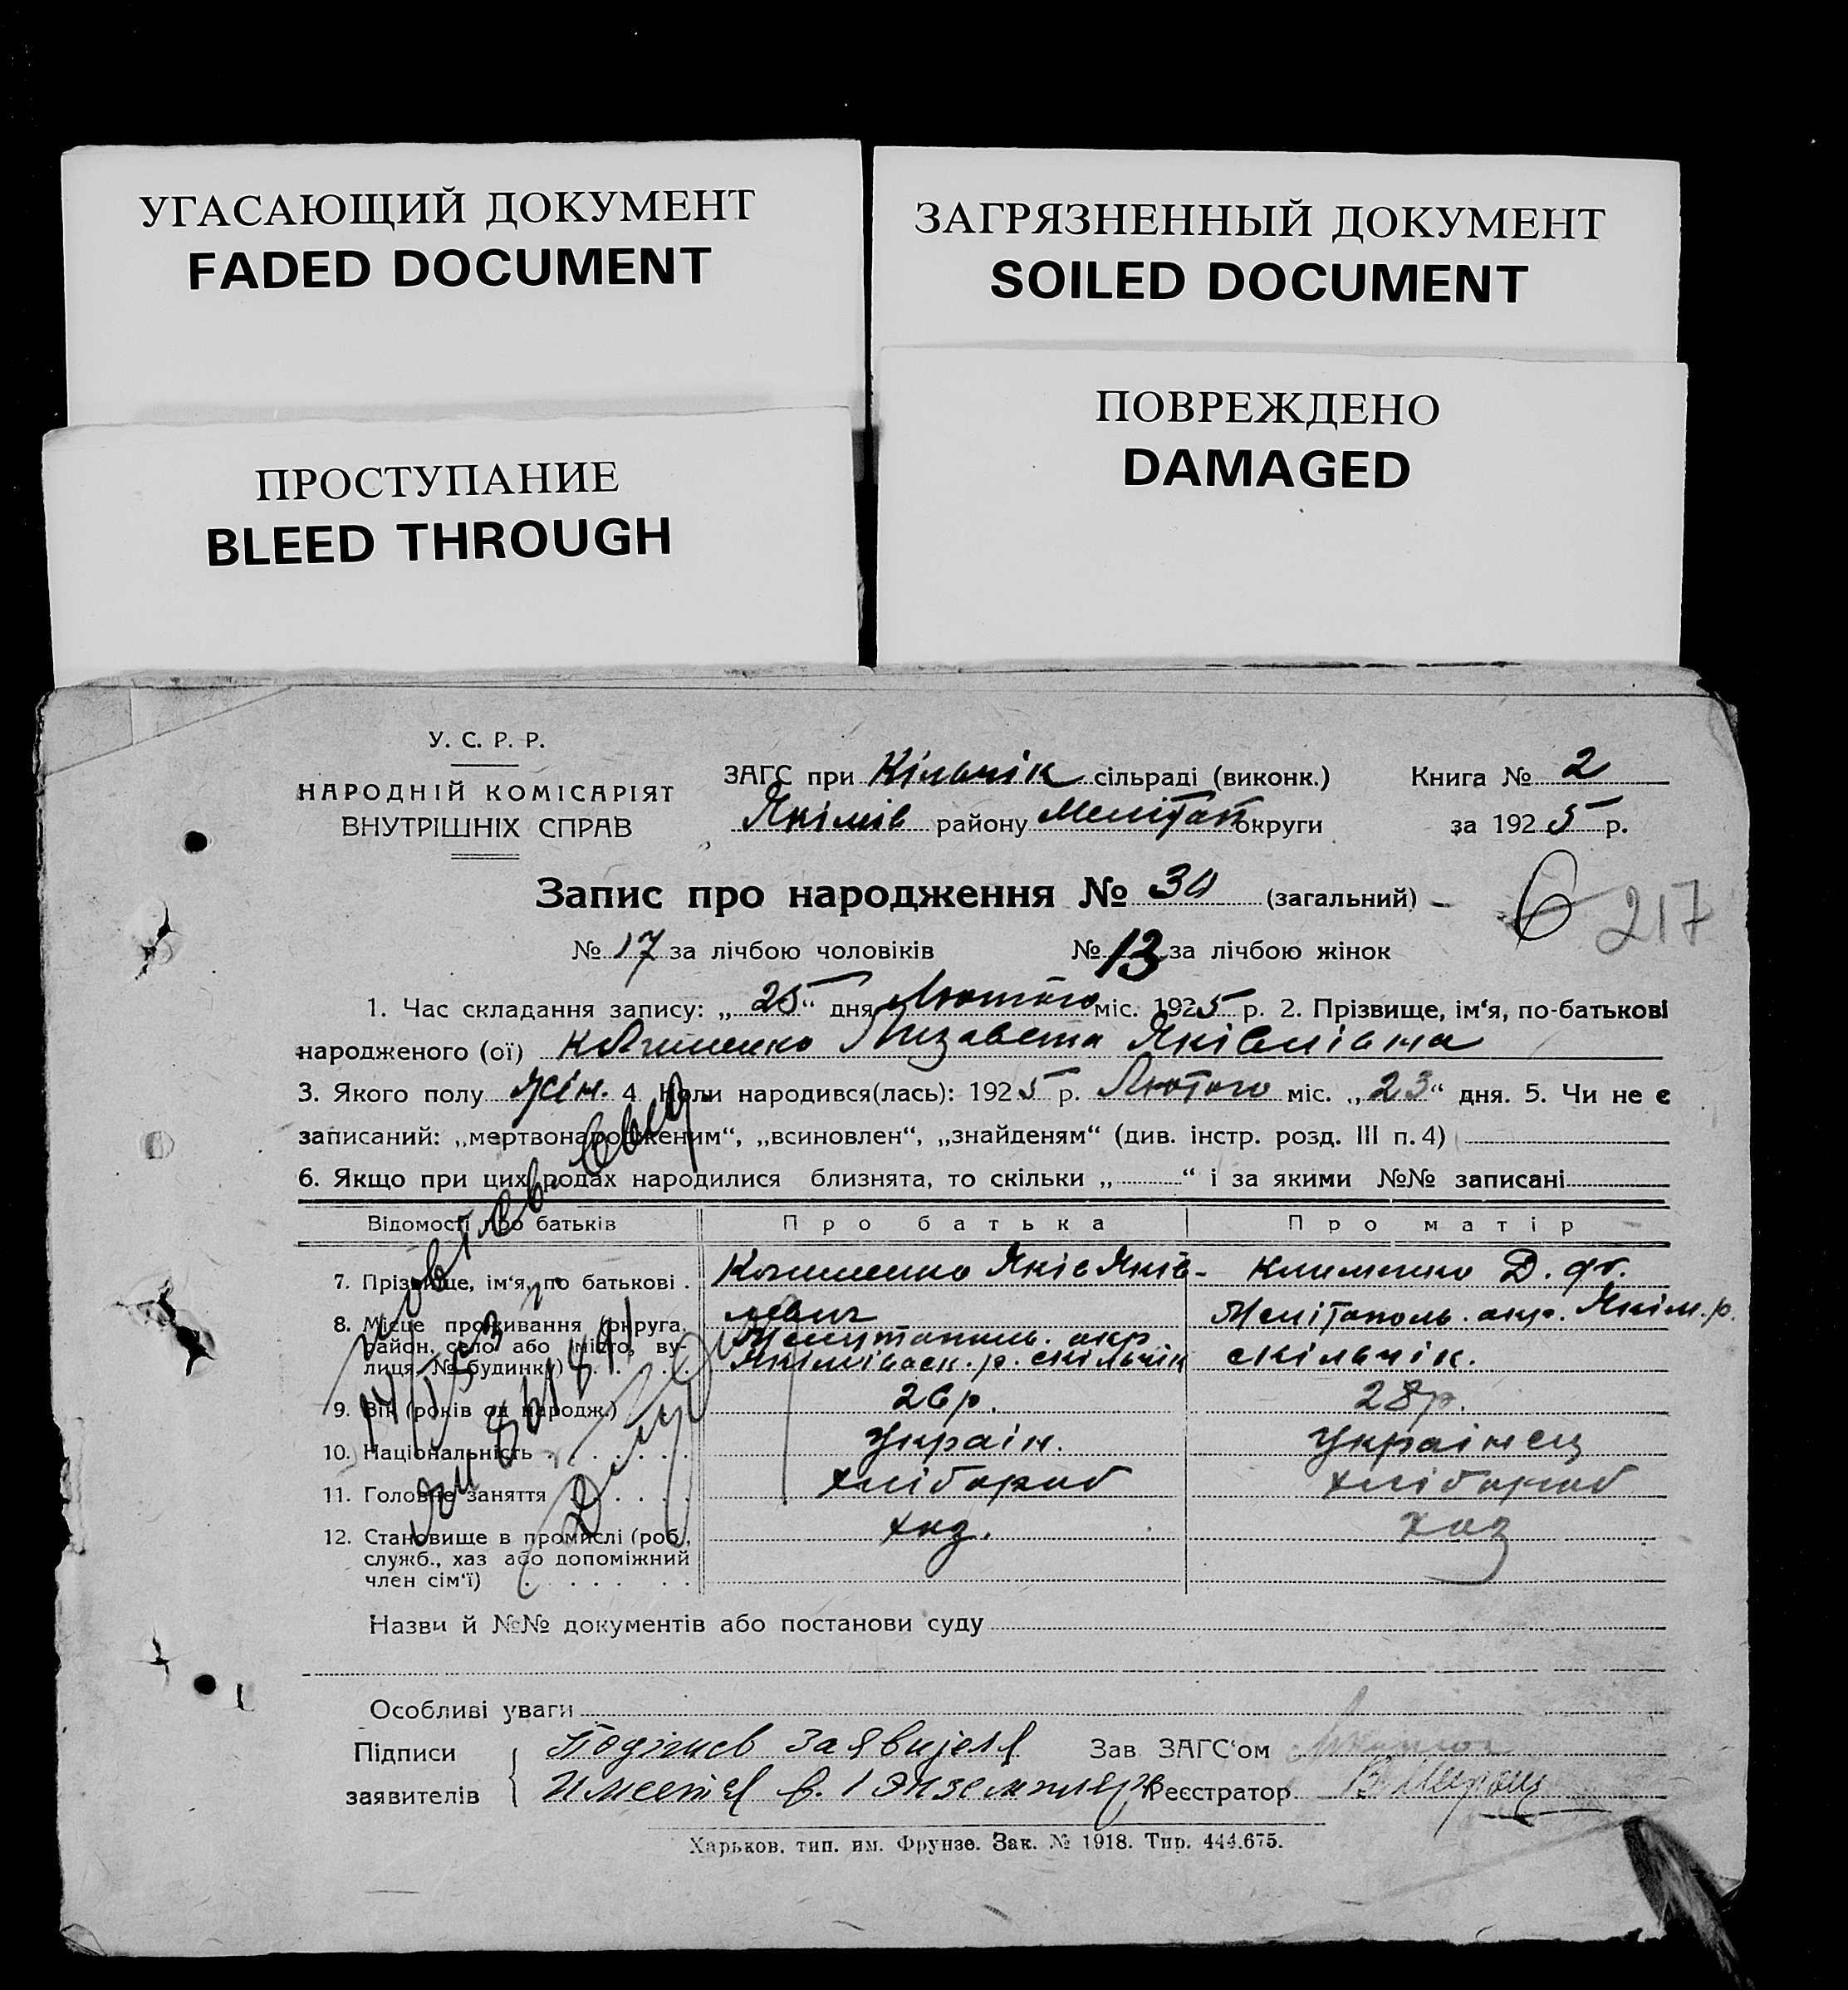 УГАСАЮЩИЙ ДОКУМЕНТ
FADED DOCUMENT
ЗАГРЯЗНЕННЫЙ ДОКУМЕНТ
SOILED DOCUMENT
ПРОСТУПАНИЕ
BLEED THROUGH
ПОВРЕЖДЕНО
DAMAGED
У. С. Р. Р.
НАРОДНІЙ КОМІСАРІЯТ
ВНУТРІШНІХ СПРАВ
ЗАГС при Кільчік сільраді (виконк.)
Якімів району Мелітоп округи
Книга № 2
за 1925 р.
Запис про народження № 30 (загальний)
6 217
№ 17 за лічбою чоловіків № 13 за лічбою жінок
1. Час складання запису: „25“ дня Лютого міс. 1925 р. 2. Прізвище, ім‘я, по-батькові
народженого (ої) Клименко Лизавета Яківлівна
3. Якого полу жін. 4. Коли народився(лась): 1925 р. Лютого міс. „23“ дня. 5. Чи не є
записаний: „мертвонародженим“, „всиновлен“, „знайденям“ (див. інстр. розд. III п. 4)
6. Якщо при цих родах народилися близнята, то скільки „ “ і за якими №№ записані
Відомості про батьків Про батька Про матір
7. Прізвище, ім‘я, по батькові . Клименко Яків Яків- Клименко Д.
левич
8. Місце проживання (округа, район, село або місто, вулиця, № будинку) Мелитополь. окр Якимівськ. р. с Кільчік Мелітополь. окр. Якім. р. с Кільчік.
9. Вік (років од народж.) 26 р. 28 р.
10. Національність Украін. Украінец
11. Головне заняття хлібороб хлібороб
12. Становище в промислі (роб., служб., хаз або допоміжний член сім‘ї) хаз. хаз
Назви й №№ документів або постанови суду
Особливі уваги
Підписи заявителів Подпись заявителя Зав ЗАГС‘ом
имеется в. 1 экземпляре Реєстратор
Харьков. тип. им. Фрунзе. Зак. № 1918. Тир. 444.675.